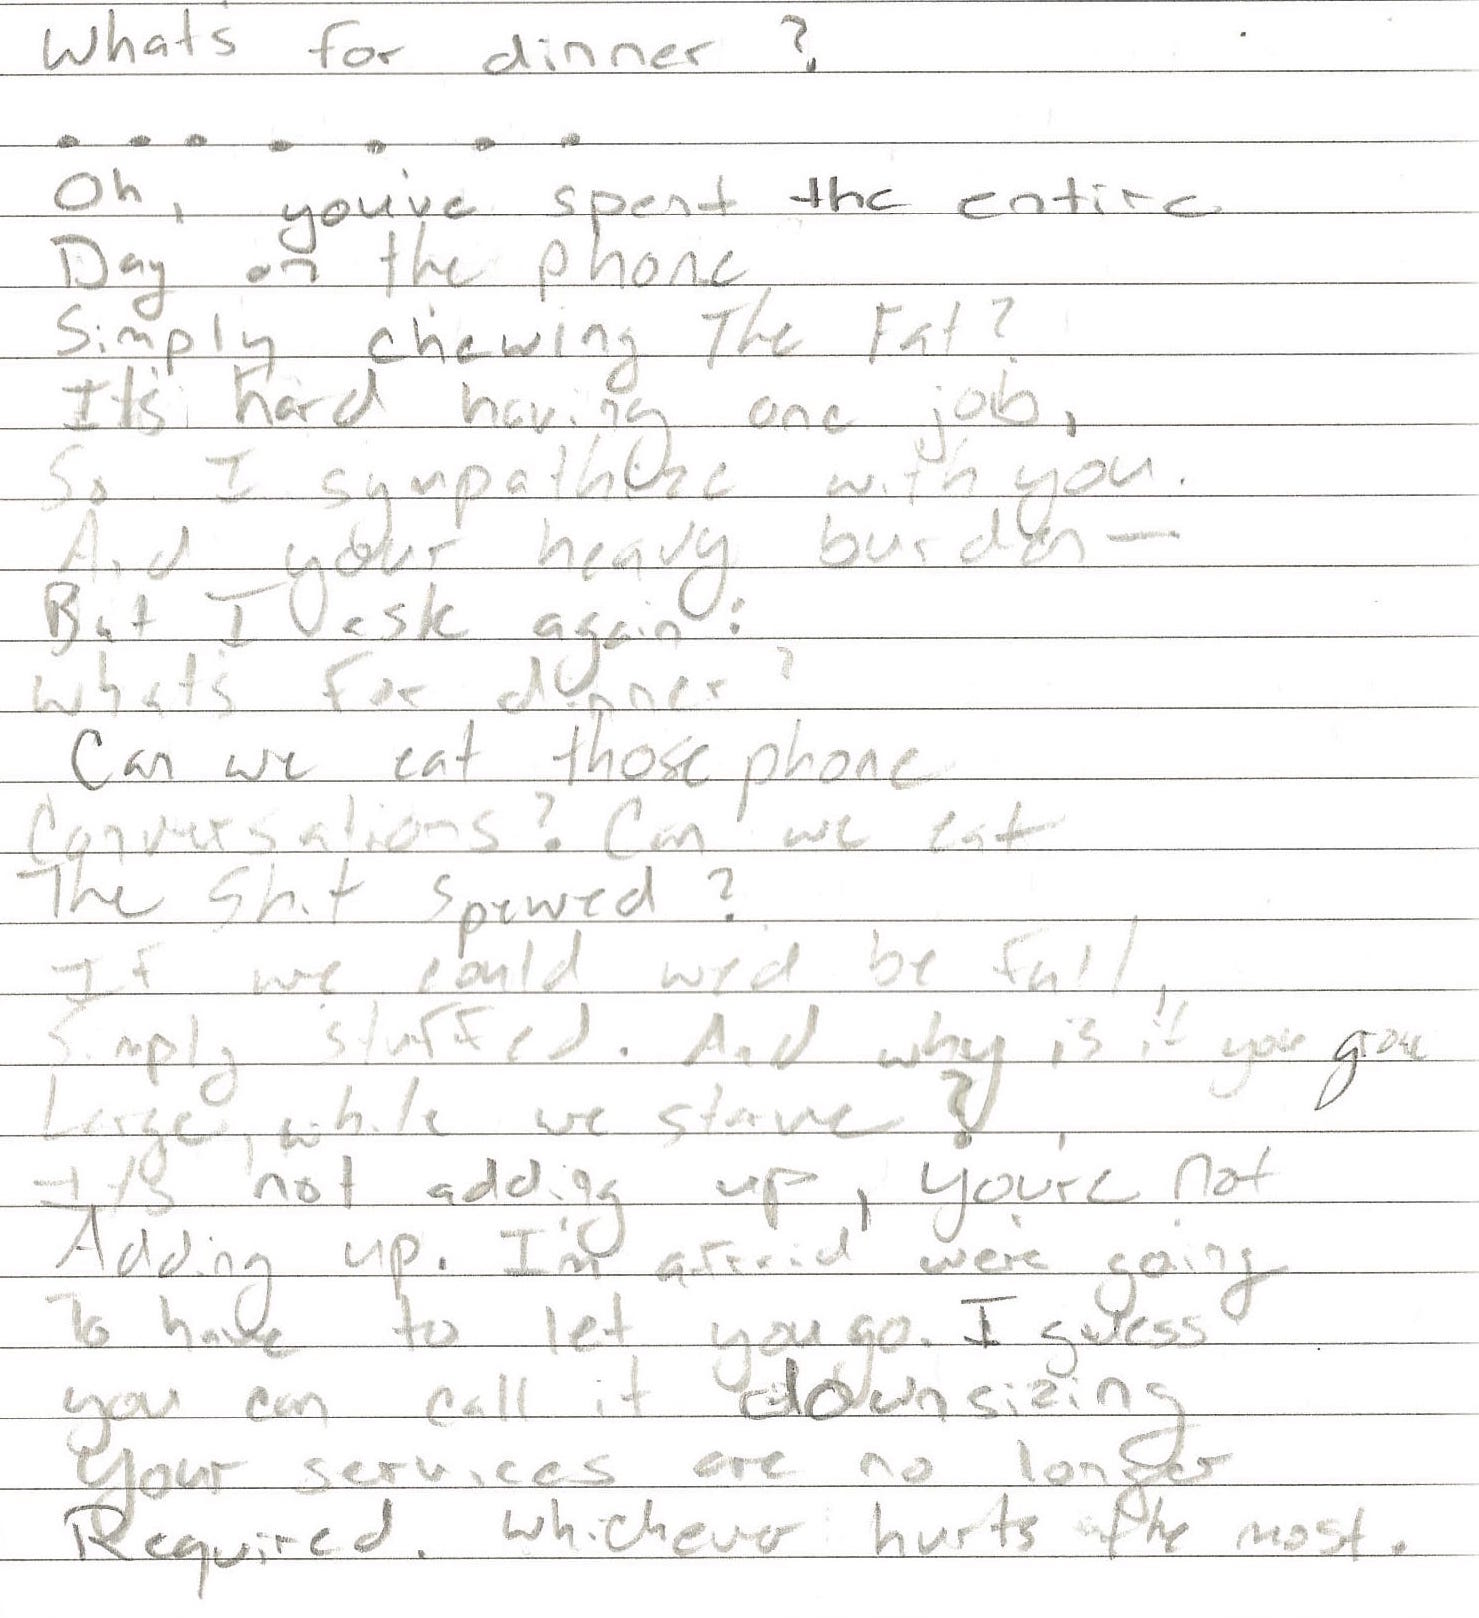 Whats for dinner?
. . . . . . .
Oh, you've spent the entire
Day on the phone
Simply chewing The Fat?
It's hard having one job,
So I sympathize with you.
And your heavy burden—
But I ask again:
What's For dinner?
Can we eat those phone
Conversations? Can we eat
The Shit spewed?
If we could we'd be full,
Simply stuffed. And why is it you grow
Large, while we starve?
It's not adding up, you're not
Adding up. I'm afraid we're going
To have to let you go. I guess
you can call it downsizing
Your services are no longer
Required. Whichever hurts the most.